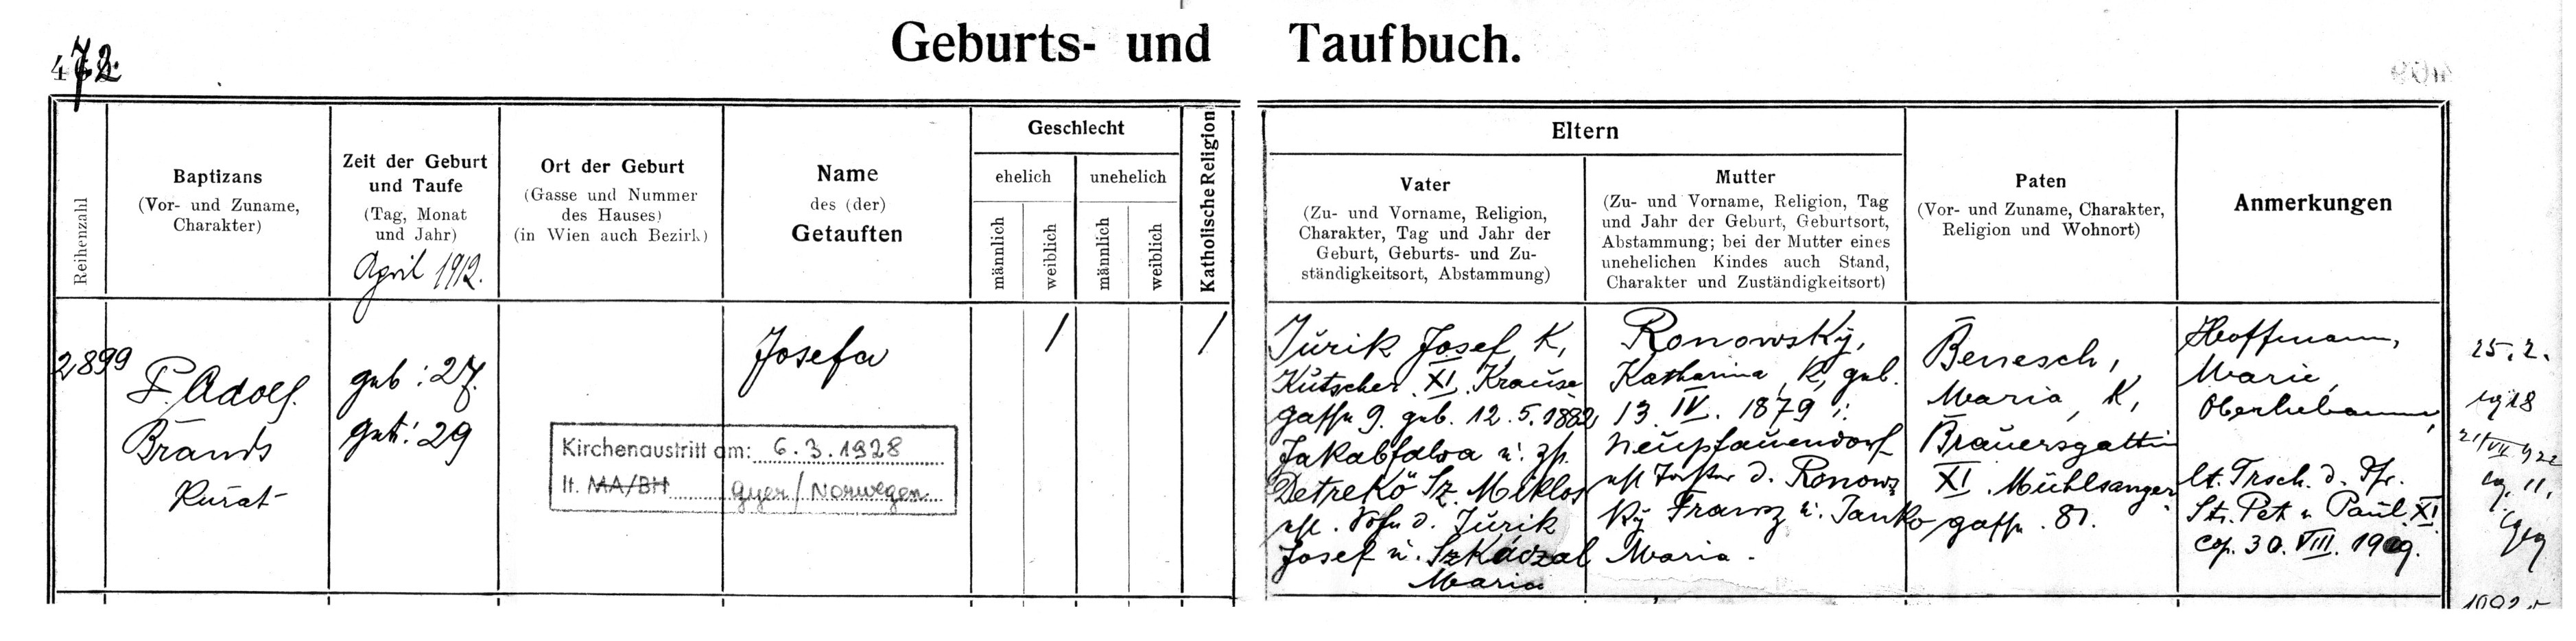 Geburts- und Taufbuch.
472.
Reihenzahl
Baptizans
(Vor- und Zuname,
Charakter)
Zeit der Geburt
und Taufe
(Tag, Monat
und Jahr)
April 1912.
Ort der Geburt
(Gasse und Nummer
des Hauses)
(in Wien auch Bezirk)
Name
des (der)
Getauften
Geschlecht
ehelich
unehelich
männlich
weiblich
männlich
weiblich
Katholische Religion
Eltern
Vater
(Zu- und Vorname, Religion,
Charakter, Tag und Jahr der
Geburt, Geburts- und Zu-
ständigkeitsort, Abstammung)
Mutter
(Zu- und Vorname, Religion, Tag
und Jahr der Geburt, Geburtsort,
Abstammung; bei der Mutter eines
unehelichen Kindes auch Stand,
Charakter und Zuständigkeitsort)
Paten
(Vor- und Zuname, Charakter,
Religion und Wohnort)
Anmerkungen
2899
P. Adolf
Brands
Kurat
geb: 27.
get: 29
Josefa
/
/
Kirchenaustritt am: 6.3.1928
lt. MA/BH Gyer/Norwegen
Jurik Josef, K,
Kutscher XI. Krause
gasse 9. geb. 12.5.1882,
Jakabfalva u. zst.
Detrekö Sz. Miklos
ehl. Sohn d. Jurik
Josef u. Szkáczal
Maria
Ronowsky,
Katharina, K, geb.
13. IV. 1879 i.
Neupfauendorf
ehl. Tochter d. Ronows
ky Franz u. Janko
Maria.
Benesch,
Maria, K,
Brauersgattin
XI. Mühlsanger
gasse. 81.
Hoffmann,
Marie,
Oberhebamme,
lt. Trsch. d. Pfr.
St. Pet. u Paul XI.
cop. 30. VIII. 1909.
25.2.
1918
21/VII 922